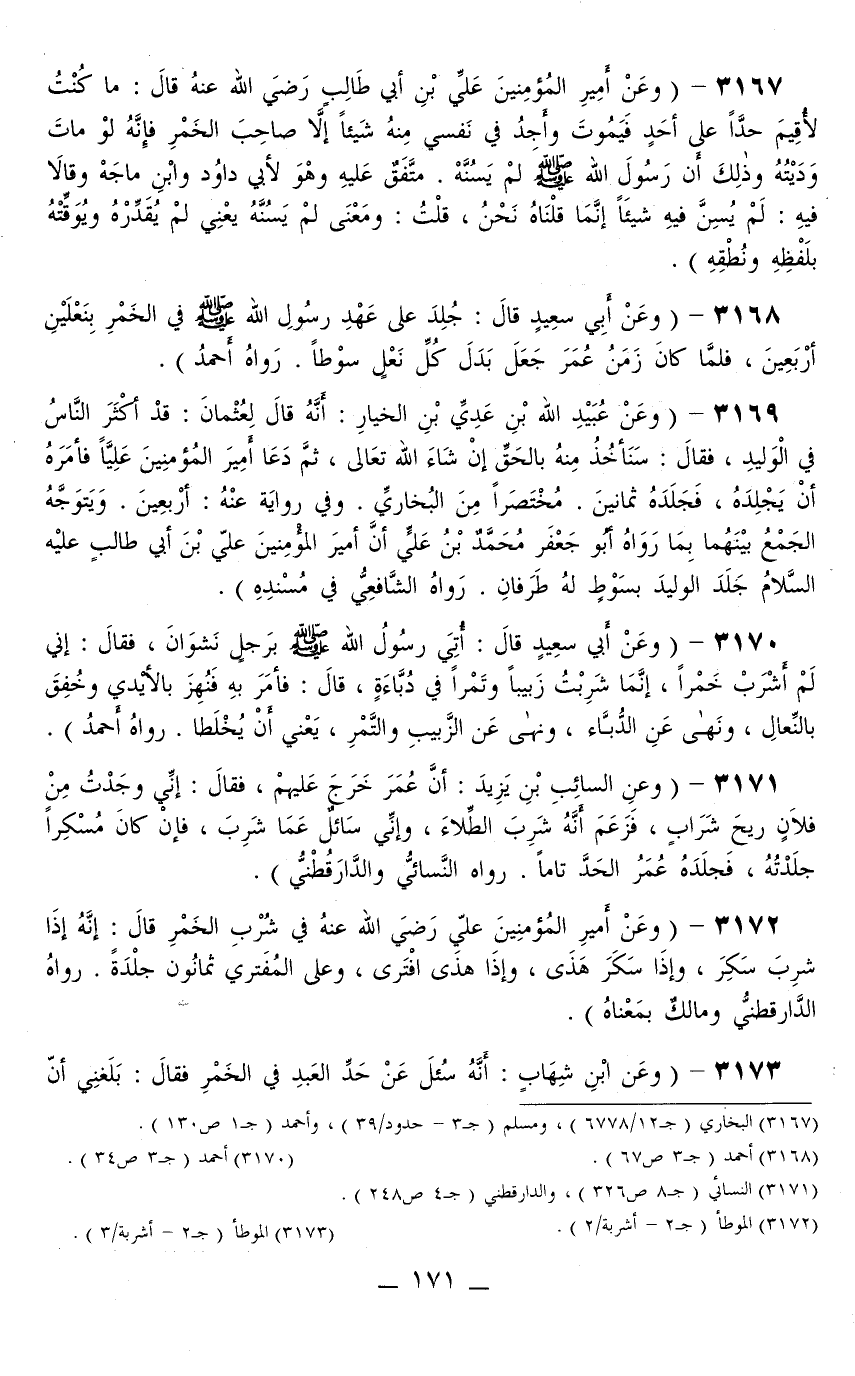 ٣١٦٧ – ( وعَنْ أَمِيرِ المُؤمِنينَ عَلِّي بْنِ أبي طَالِبٍ رَضيَ الله عنهُ قالَ : ما كُنْتُ
لأُقِيمَ حدَّاً على أحَدٍ فَيَمُوتَ وأجِدُ في نَفسي مِنهُ شَيئاً إلَّا صاحِبَ الخَمْرِ فإنَّهُ لوْ ماتَ
وَدَيْتُهُ وذٰلِكَ أَن رَسُولَ الله ﷺ لمْ يَسُنَّهْ . متَّفَقٌ عَليهِ وهْوَ لأبي داوُد وابْنِ ماجَهْ وقالَا
فيهِ : لَمْ يُسِنَّ فيهِ شيئَاً إنَّمَا قلْنَاهُ نَحْنُ ، قلْتُ : ومَعْنَى لمْ يَسُنَّهُ يعْنِي لمْ يُقَدِّرْهُ ويُوَقِّتْهُ
بلَفْظِهِ ونُطْقِهِ ) .
٣١٦٨ – ( وعَنْ أَبِي سعِيدٍ قالَ : جُلِدَ على عَهْدِ رسُولِ الله ﷺ في الخَمْرِ بِنَعْلَيْنِ
أرْبَعِينَ ، فلمَّا كانَ زَمَنُ عُمَرَ جَعَلَ بَدَلَ كُلِّ نَعْلٍ سوْطاً . رَواهُ أَحمدُ ) .
٣١٦٩ – ( وعَنْ عُبَيْدِ الله بْنِ عَدِيِّ بْنِ الخيارِ : أَنَّهُ قالَ لِعُثْمانَ : قدْ أكْثَرَ النَّاسُ
في الْوَليدِ ، فقالَ : سَنَأخُذُ مِنهُ بالحَقِّ إنْ شاءَ الله تعَالى ، ثمَّ دَعَا أَمِيرَ المُؤمِنينَ عَلِيَّاً فأمَرَهُ
أنْ يَجْلِدَهُ ، فَجَلَدَهُ ثمانينَ . مُخْتَصَراً مِنَ البُخاريِّ . وفي روايَة عنْهُ : أرْبعِينَ . وَيَتوَجَّهُ
الجَمْعُ بيْنَهُما بِمَا رَوَاهُ أبُو جَعْفَر مُحَمَّدُ بْنُ عَليٍّ أنَّ أميرَ المؤْمِنينَ عليّ بْنَ أبي طالبٍ عليْه
السَّلامُ جَلَدَ الوليدَ بسَوْطٍ لهُ طَرَفانِ . رَواهُ الشَّافعِيُّ في مُسْندِهِ ) .
٣١٧٠ – ( وعَنْ أبي سعِيدٍ قالَ : أُتِيَ رسُولُ الله ﷺ بِرَجلٍ نَشوَانَ ، فقالَ : إني
لَمْ أشْرَبْ خَمْراً ، إنَّمَا شَرِبْتُ زَبيباً وتَمْراً في دُبَّاءَةٍ ، قالَ : فأمَرَ بهِ فَنُهِزَ بالأيْدي وخُفِقَ
بالنِّعالِ ، ونَهىٰ عَنِ الدُّبَّاء ، ونهىٰ عَن الزَّبيبِ والتَّمْرِ ، يَعْني أَنْ يُخْلَطا . رواهُ أَحمدُ ) .
٣١٧١ – ( وعنِ السائِبِ بْنِ يَزِيدَ : أنَّ عُمَرَ خَرَجَ عَليهمْ ، فقالَ : إنِّي وجَدْتُ مِنْ
فلانٍ ريحَ شَرَابٍ ، فَزَعَمَ أَنَّهُ شَرِبَ الطِّلاءَ ، وإنِّي سَائلٌ عَمَا شَرِبَ ، فإنْ كانَ مُسْكِراً
جلَدْتُهُ ، فَجلَدَهُ عُمَرُ الحَدَّ تاماً . رواه النَّسائيُّ والدَّارَقُطْنيُّ ) .
٣١٧٢ – ( وعَنْ أميرِ المُؤمنِينَ عليّ رَضيَ الله عنهُ في شُرْبِ الخَمْرِ قالَ : إنَّهُ إذَا
شرِبَ سَكِرَ ، وإذَا سَكَرَ هَذَى ، وإذَا هذَى افْتَرى ، وعلى المُفتَري ثمانُون جلْدَةً . رواهُ
الدَّارقطنيُّ ومالكٌ بمَعْناهُ ) .
٣١٧٣ – ( وعَن ابْنِ شِهَابٍ : أَنَّهُ سُئلَ عَنْ حَدِّ العَبدِ في الخَمْرِ فقالَ : بَلَغنِي أنّ
(٣١٦٧) البخاري ( جـ١٢/ ٦٧٧٨ ) ، ومسلم ( جـ٣ – حدود/ ٣٩ ) ، وأحمد ( جـ١ ص١٣٠ ) .
(٣١٦٨) أحمد ( جـ٣ ص٦٧ ) . (٣١٧٠) أحمد ( جـ٣ ص٣٤ ) .
(٣١٧١) النسائي ( جـ٨ ص٣٢٦ ) ، والدارقطني ( جـ٤ ص٢٤٨ ) .
(٣١٧٢) الموطأ ( جـ٢ – أشربة/ ٢ ) . (٣١٧٣) الموطأ ( جـ٢ – أشربة/ ٣ ) .
– ١٧١ –